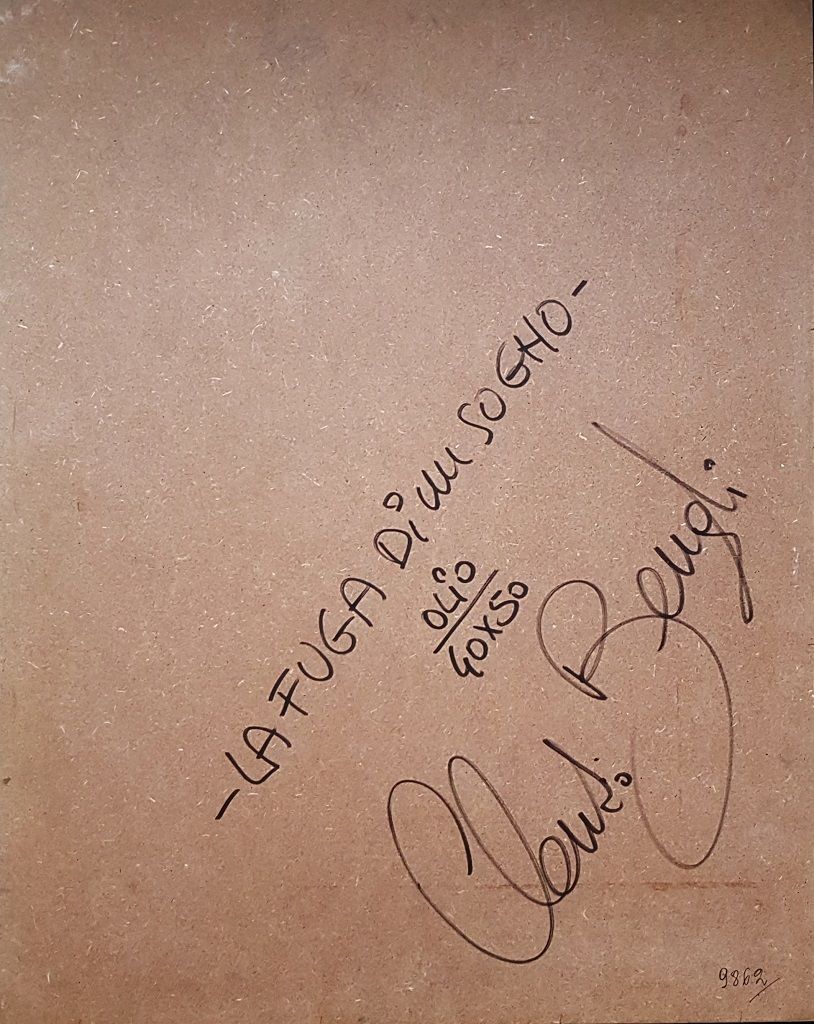 - LA FUGA Di UN SOGNO -
OLiO
40X50
9862